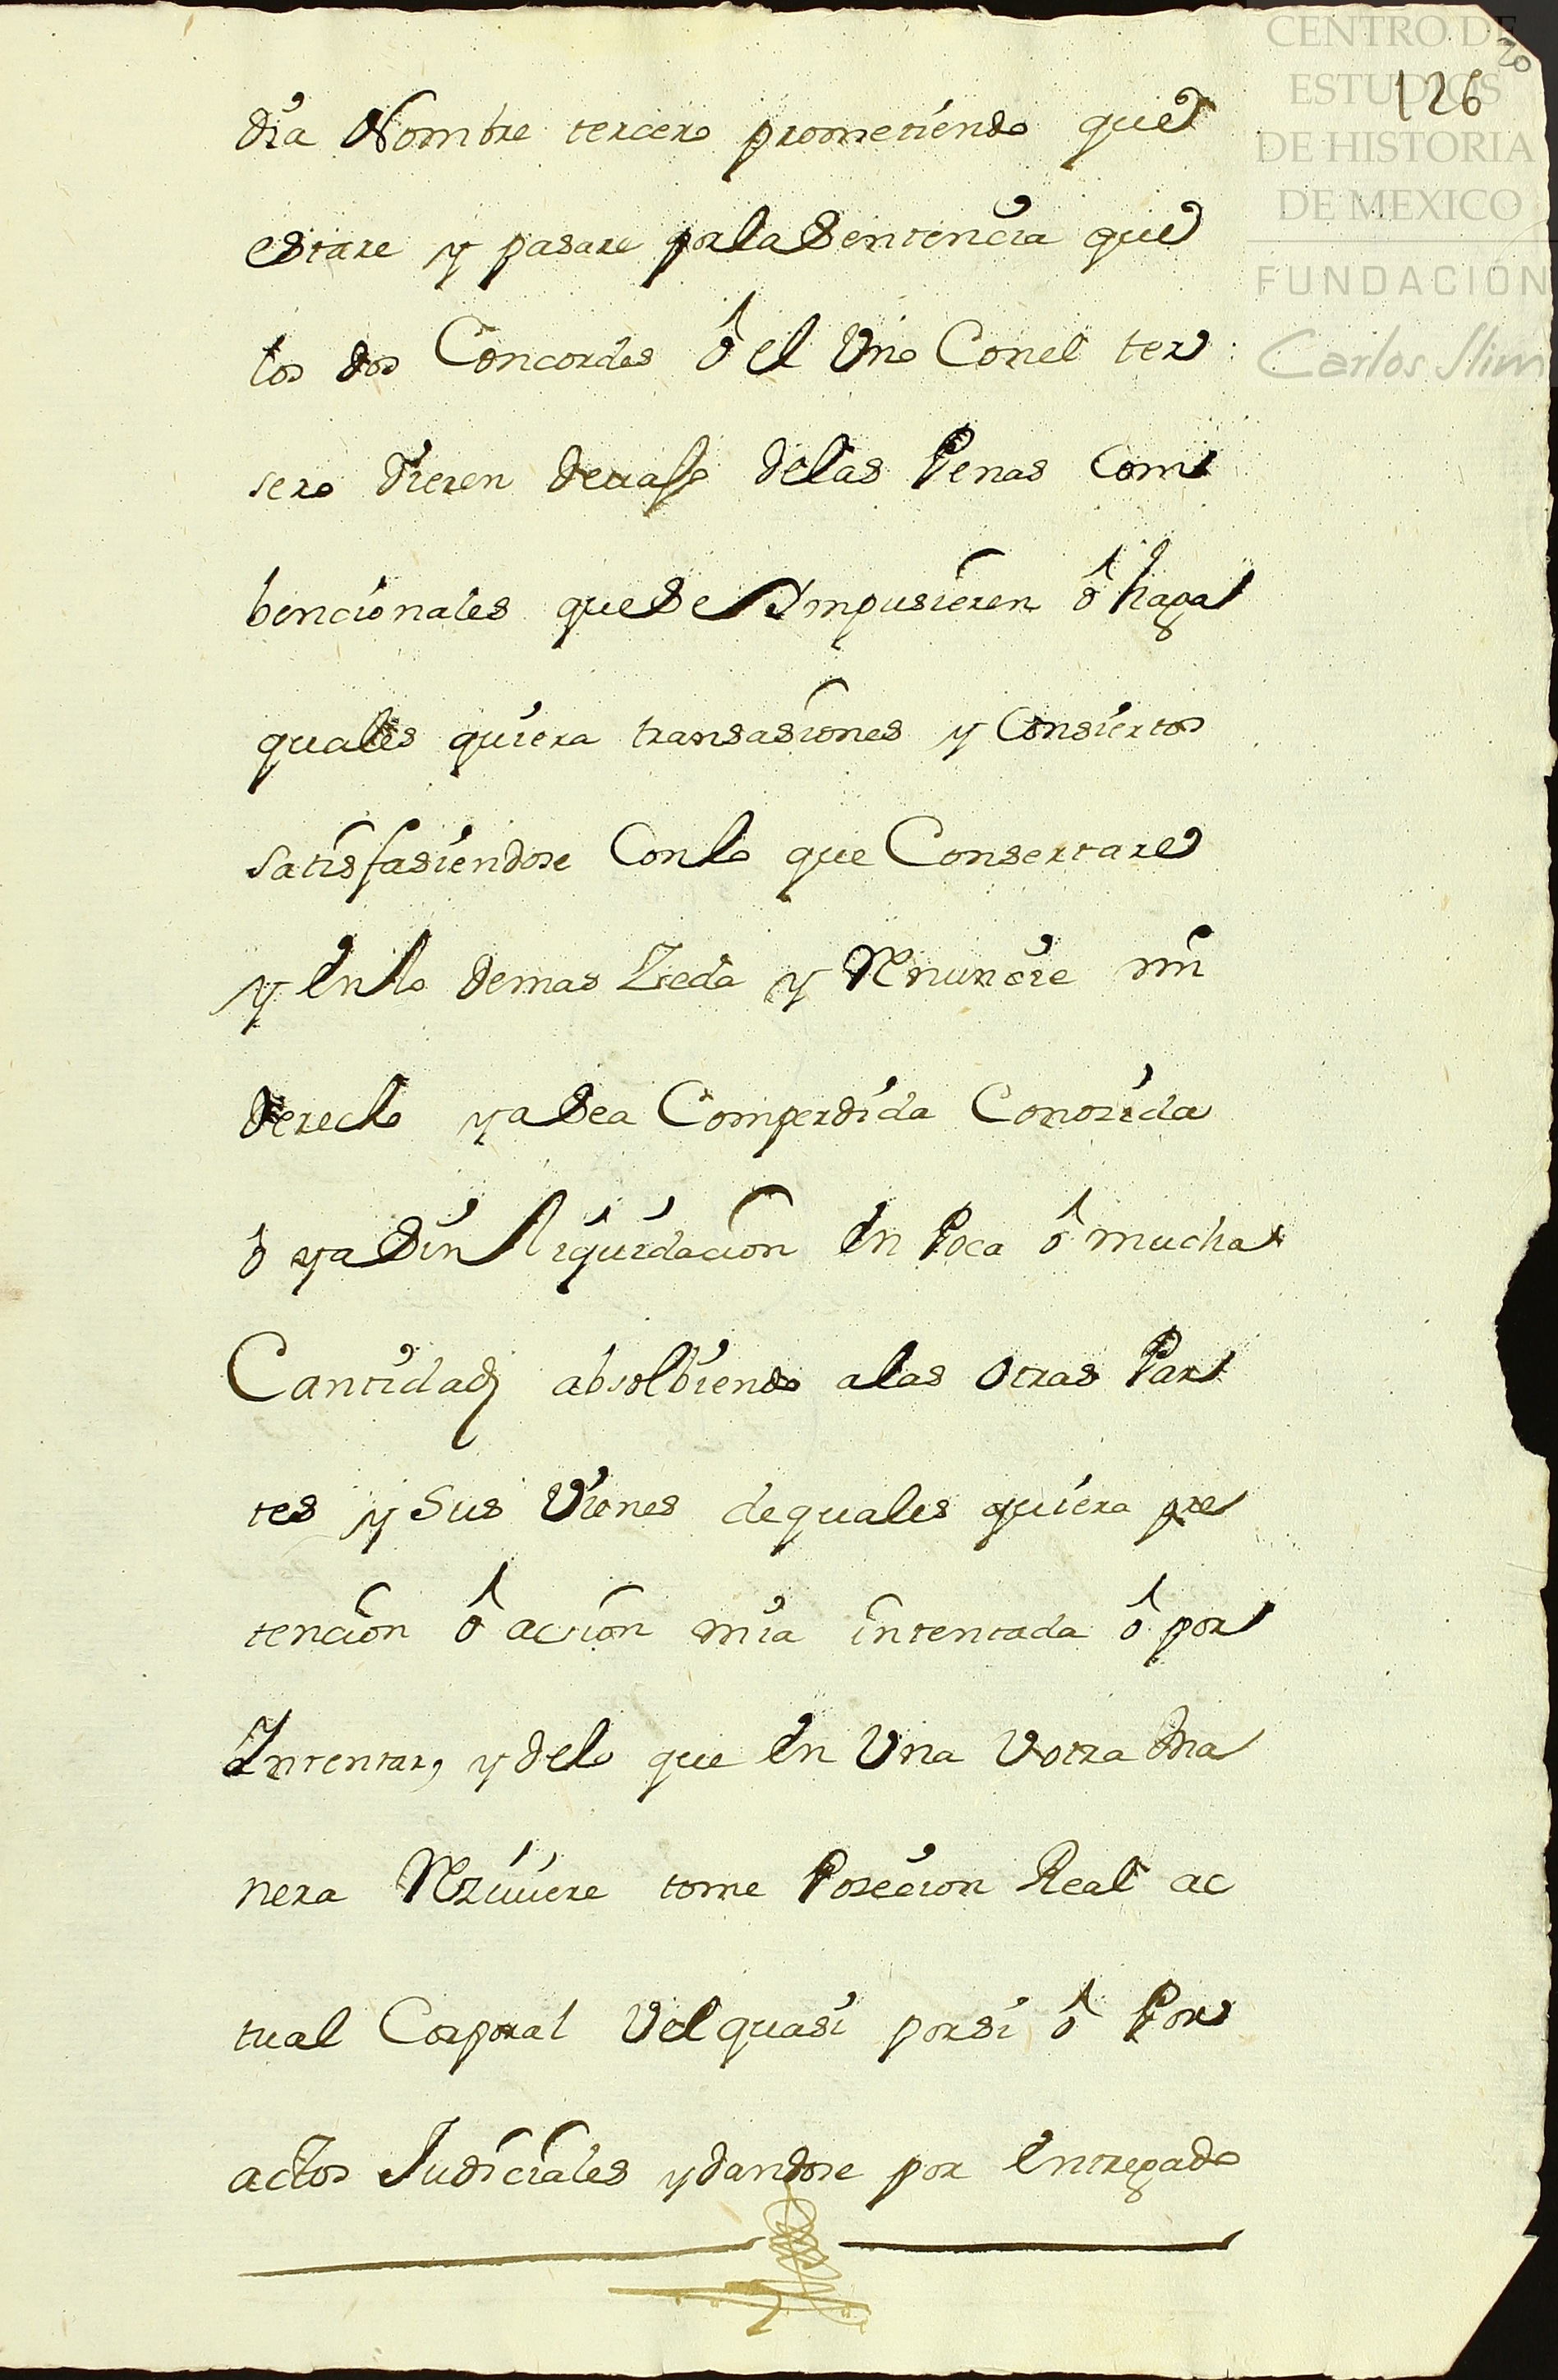 CENTRO DE
ESTUDIOS
DE HISTORIA
DE MEXICO
FUNDACIÓN
Carlos Slim
20
126
dia Nombre tercero prometiendo que
estare y pasare por la Sentencia que
los dos Concordes ô el Uno Con el ter
sero dieren devajo de las Penas Com
bencionales que Se Ympusieren ô haga
quales quiera transasiones y Consiertos
satisfasiendose Con lo que Consertare
y en lo demas Zeda y Renuncie mi
derecho ya Sea Com perdida Conosida
ô ya Sin liquidacion en Poca ô mucha
Cantidad absolbiendo a las otras Par
tes y Sus Vienes de quales quiera pre
tencion ô acsion mia intentada ô por
Intentar, y de lo que en Una U otra Ma
nera Reziviere tome Posecion Real ac
tual Corporal Vel quasi por si ô Por
actos Judiciales y dandose por entregado